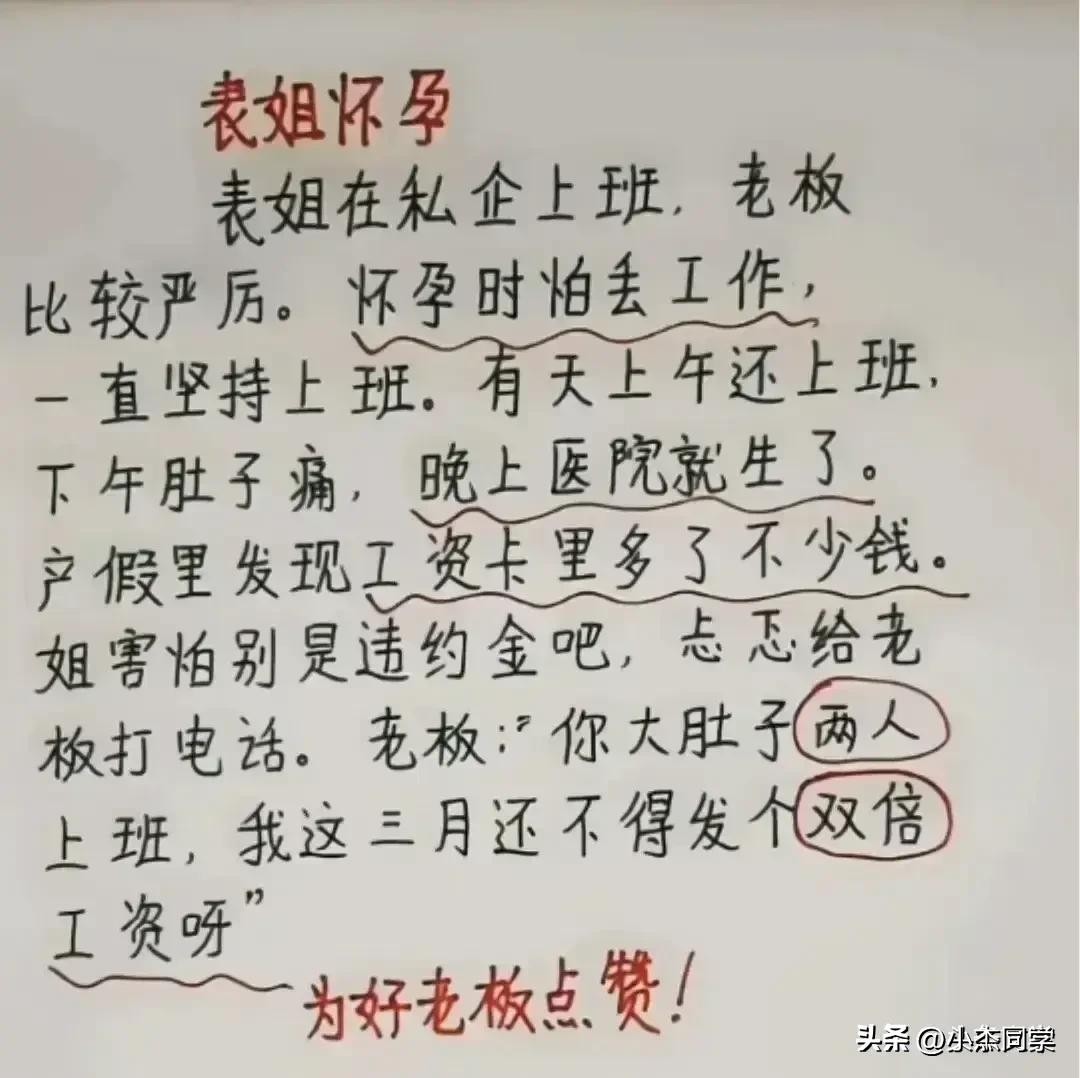 表姐怀孕
表姐在私企上班,老板
比较严厉。怀孕时怕丢工作,
一直坚持上班。有天上午还上班,
下午肚子痛,晚上医院就生了。
产假里发现工资卡里多了不少钱。
姐害怕别是违约金吧,忐忑给老
板打电话。老板:"你大肚子两人
上班,我这三月还不得发个双倍
工资呀"
为好老板点赞!
头条 @小杰同学